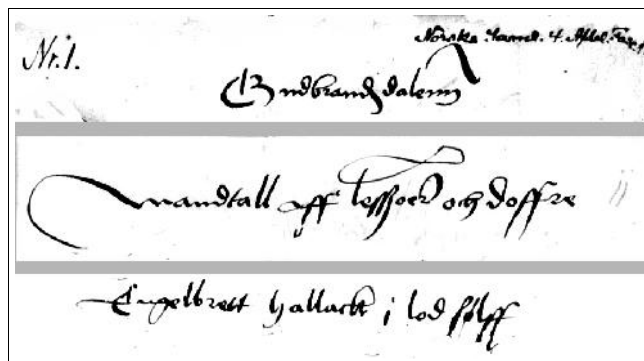 Nr. 1.
Norske Saml. 4. Afdel.
Gudbrandzdalenn
Mandtall aff lessøer och doffre
Engelbrett hallack j lod sølff